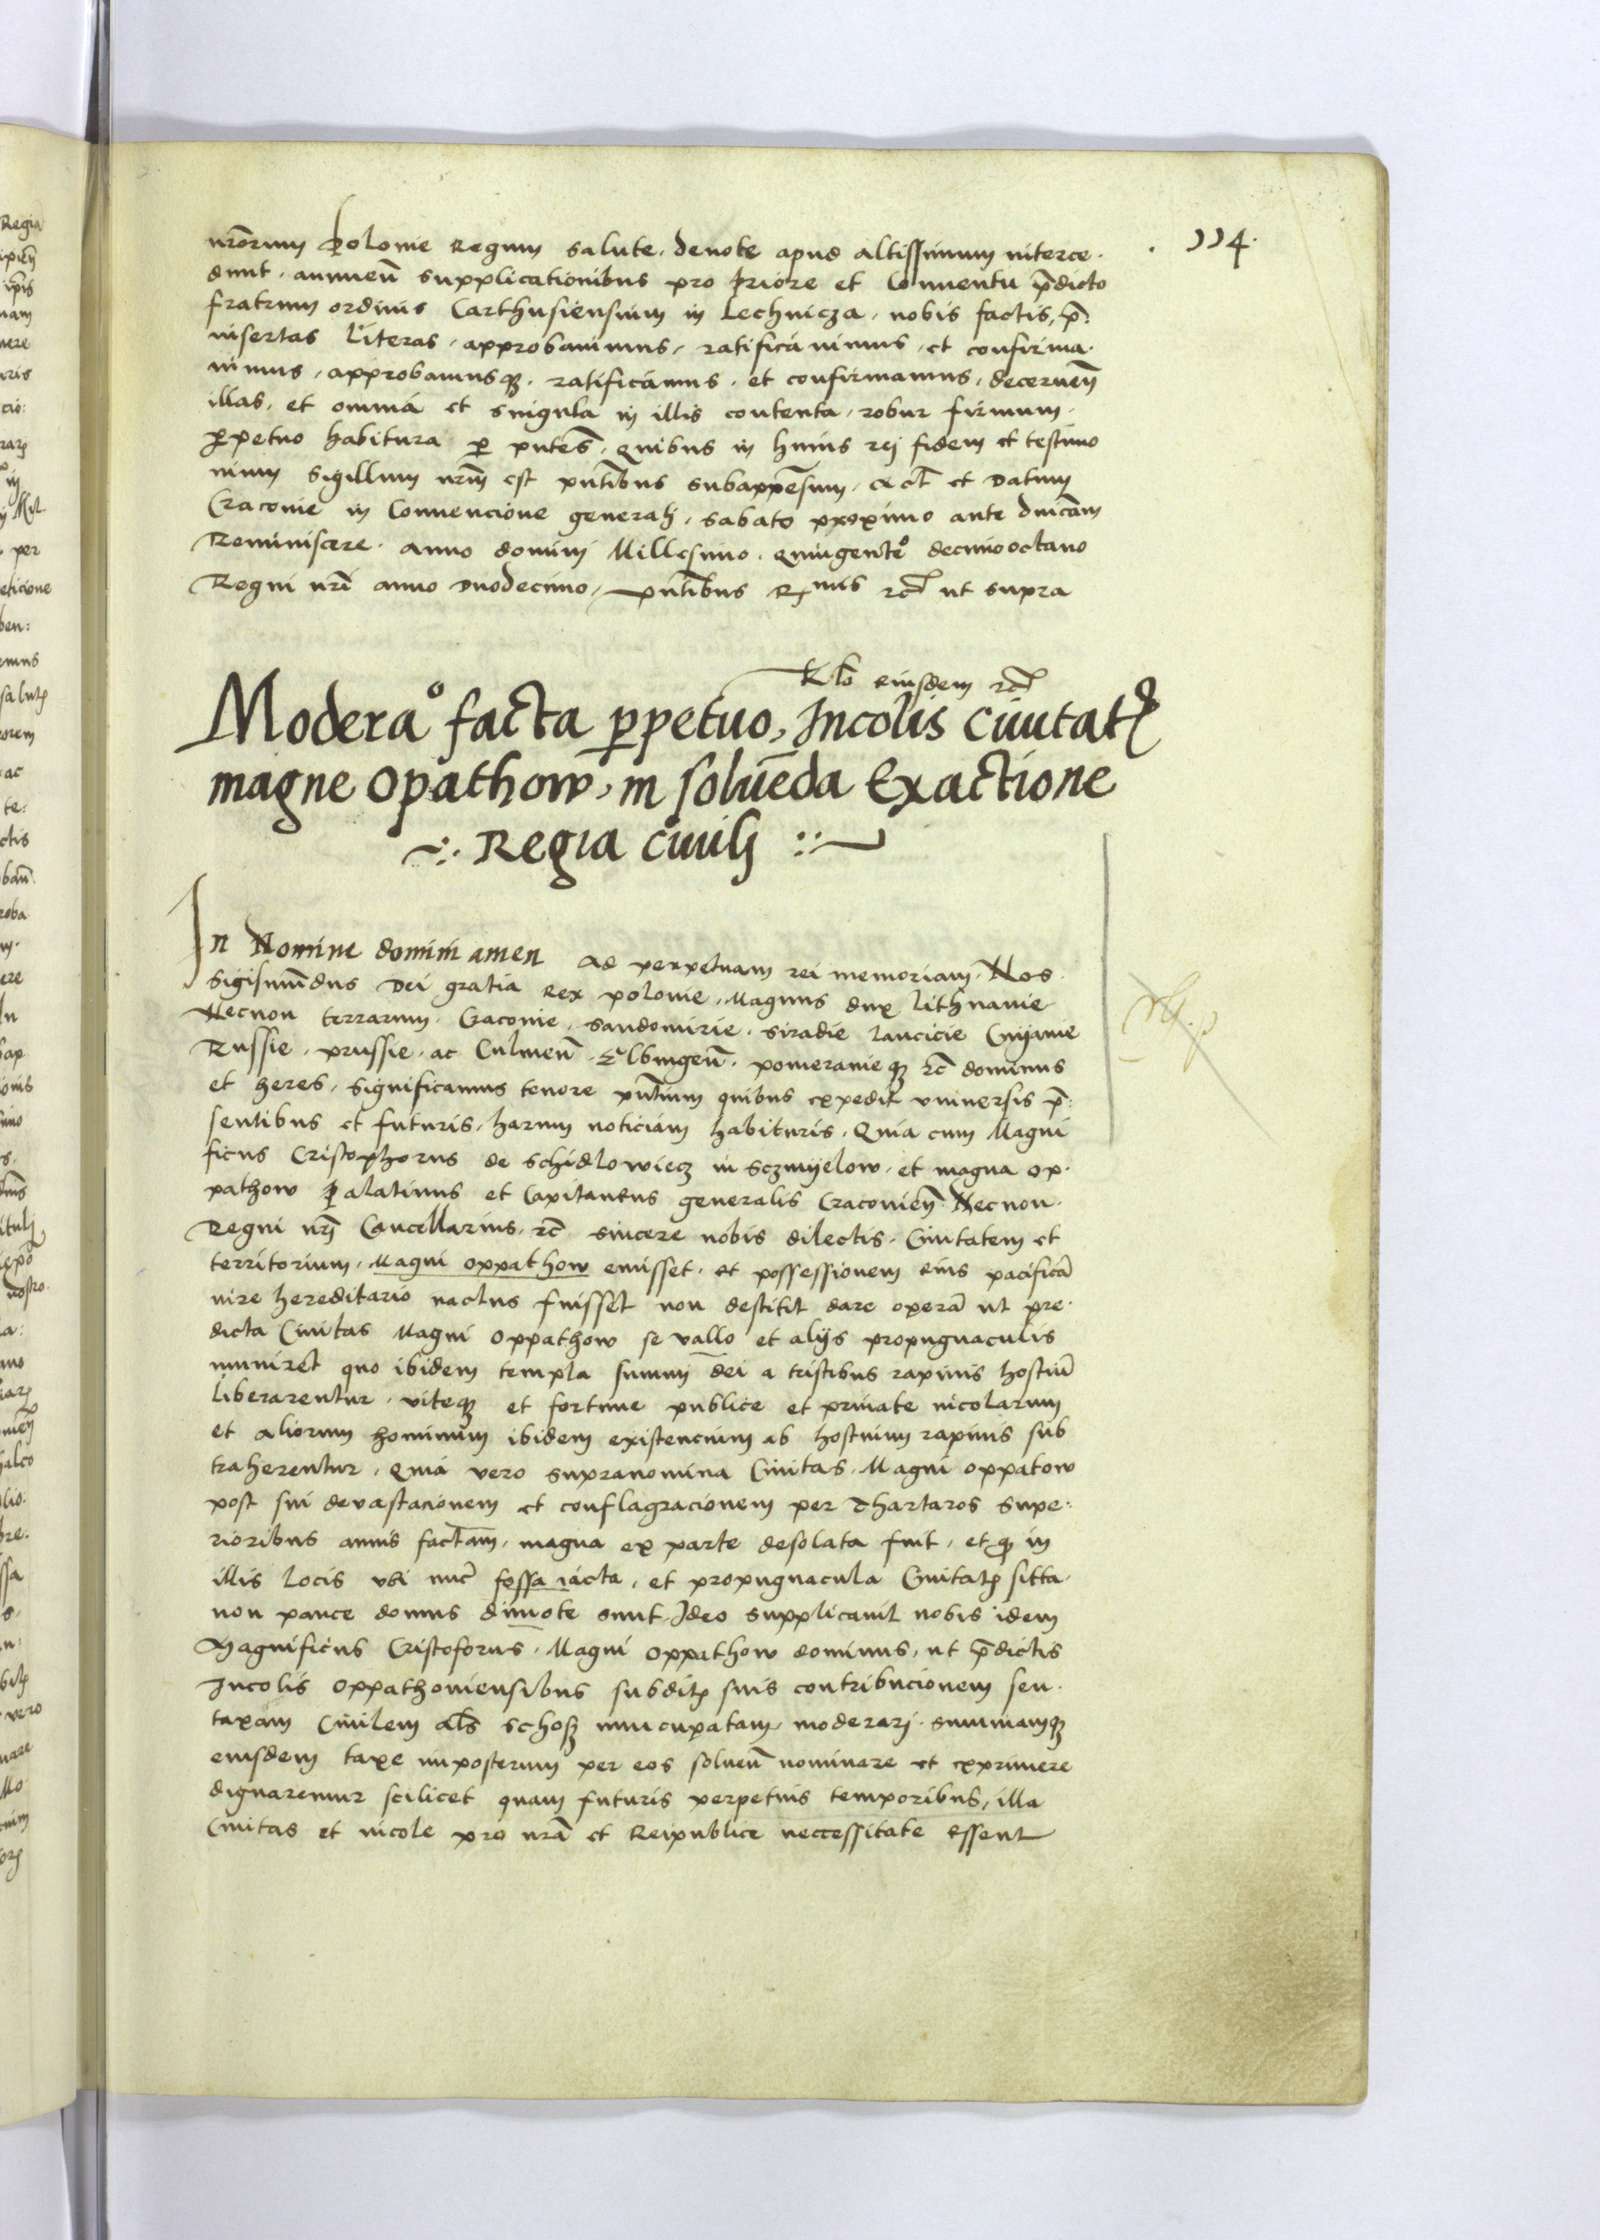 114.
nr̄orum Polonie Regum salute. devote apud altissimum interce.
dunt. annuen̄ supplicationibus pro priore et Conventu p̄dicto
fratrum ordinis Carthusiensium in Lechnicza, nobis factis, p̄:
insertas literas, approbavimus, ratificavimus, et confirma.
vimus, approbamusqꝫ. ratificamus. et confirmamus, decernen̄
illas, et omnia et singula in illis contenta, robur firmum.
ꝑpetuo habitura ꝑ pn̄tes. Quibus in huius rej fidem et testimo
nium sigillum nr̄m est pn̄tibus subappensum. Act et Datum
Cracovie in Convencione generalj, sabato proximo ante dn̄icam
Reminiscere. Anno dominj Millesimo. quingenteº decimooctavo
Regni nr̄i anno duodecimo, pn̄tibus Rmis rc̄ ut supra
Rlō eiusdem rc̄
Moderaº facta ꝑpetuo, Incolis Civitatꝭ
magne Opathow, in solvēda Exactione
Regia Civilj
In Nomine dominj amen Ad perpetuam rei memoriam. Nos.
Sigismūdus Dei gratia Rex polonie, Magnus dux Lithuanie
Necnon terrarum. Cracovie, sandomirie. siradie lancicie Cuyavie
Russie, prussie, ac Culmen̄. Elbingen̄. pomeranieqꝫ rc̄ dominus
et heres, significamus tenore pn̄tium quibus expedit universis p̄:
sentibus et futuris, harum noticiam habituris. Quia cum Magni
ficus Cristophorus de schidlowiecz in Sczmyelow, et magna op.
pathow Palatinus et Capitaneus generalis Cracovien̄ Necnon.
Regni nrj̄ Cancellarius, rc̄ sincere nobis dilectis. Civitatem et
territorium, Magni oppathow emisset, et possessionem eius pacificā
iure hereditario nactus fuisset non destitit dare operā ut pre.
dicta Civitas Magni Oppathow se vallo et alijs propugnaculis
muniret quo ibidem templa summj dei a tristibus rapinis hostiū
liberarentur, viteqꝫ et fortune publice et private incolarum
et aliorum hominum ibidem existencium ab hostium rapinis sub
traherentur, Quia vero supranomina Civitas, Magni oppatow
post sui devastacionem et conflagracionem per Thartaros supe:
rioribus annis factam, magna ex parte desolata fuit, et qꝫ in
illis locis ubi nunc̄ fossa iacta, et propugnacula Civitatꝭ sitta.
non pauce domus dimote sunt. Ideo supplicavit nobis idem
Magnificus Cristoforus, Magni Oppathow dominus, ut p̄dictis
Incolis Oppathoviensibus subditꝭ suis contribucionem seu.
taxam Civilem als̄ schosz nuncupatam, moderarj. summamqꝫ
eiusdem taxe imposterum per eos solven̄ nominare et exprimere
dignaremur scilicet quam futuris perpetuis temporibus, illa
Civitas et incole pro nr̄a et Reipublice neccessitate essent